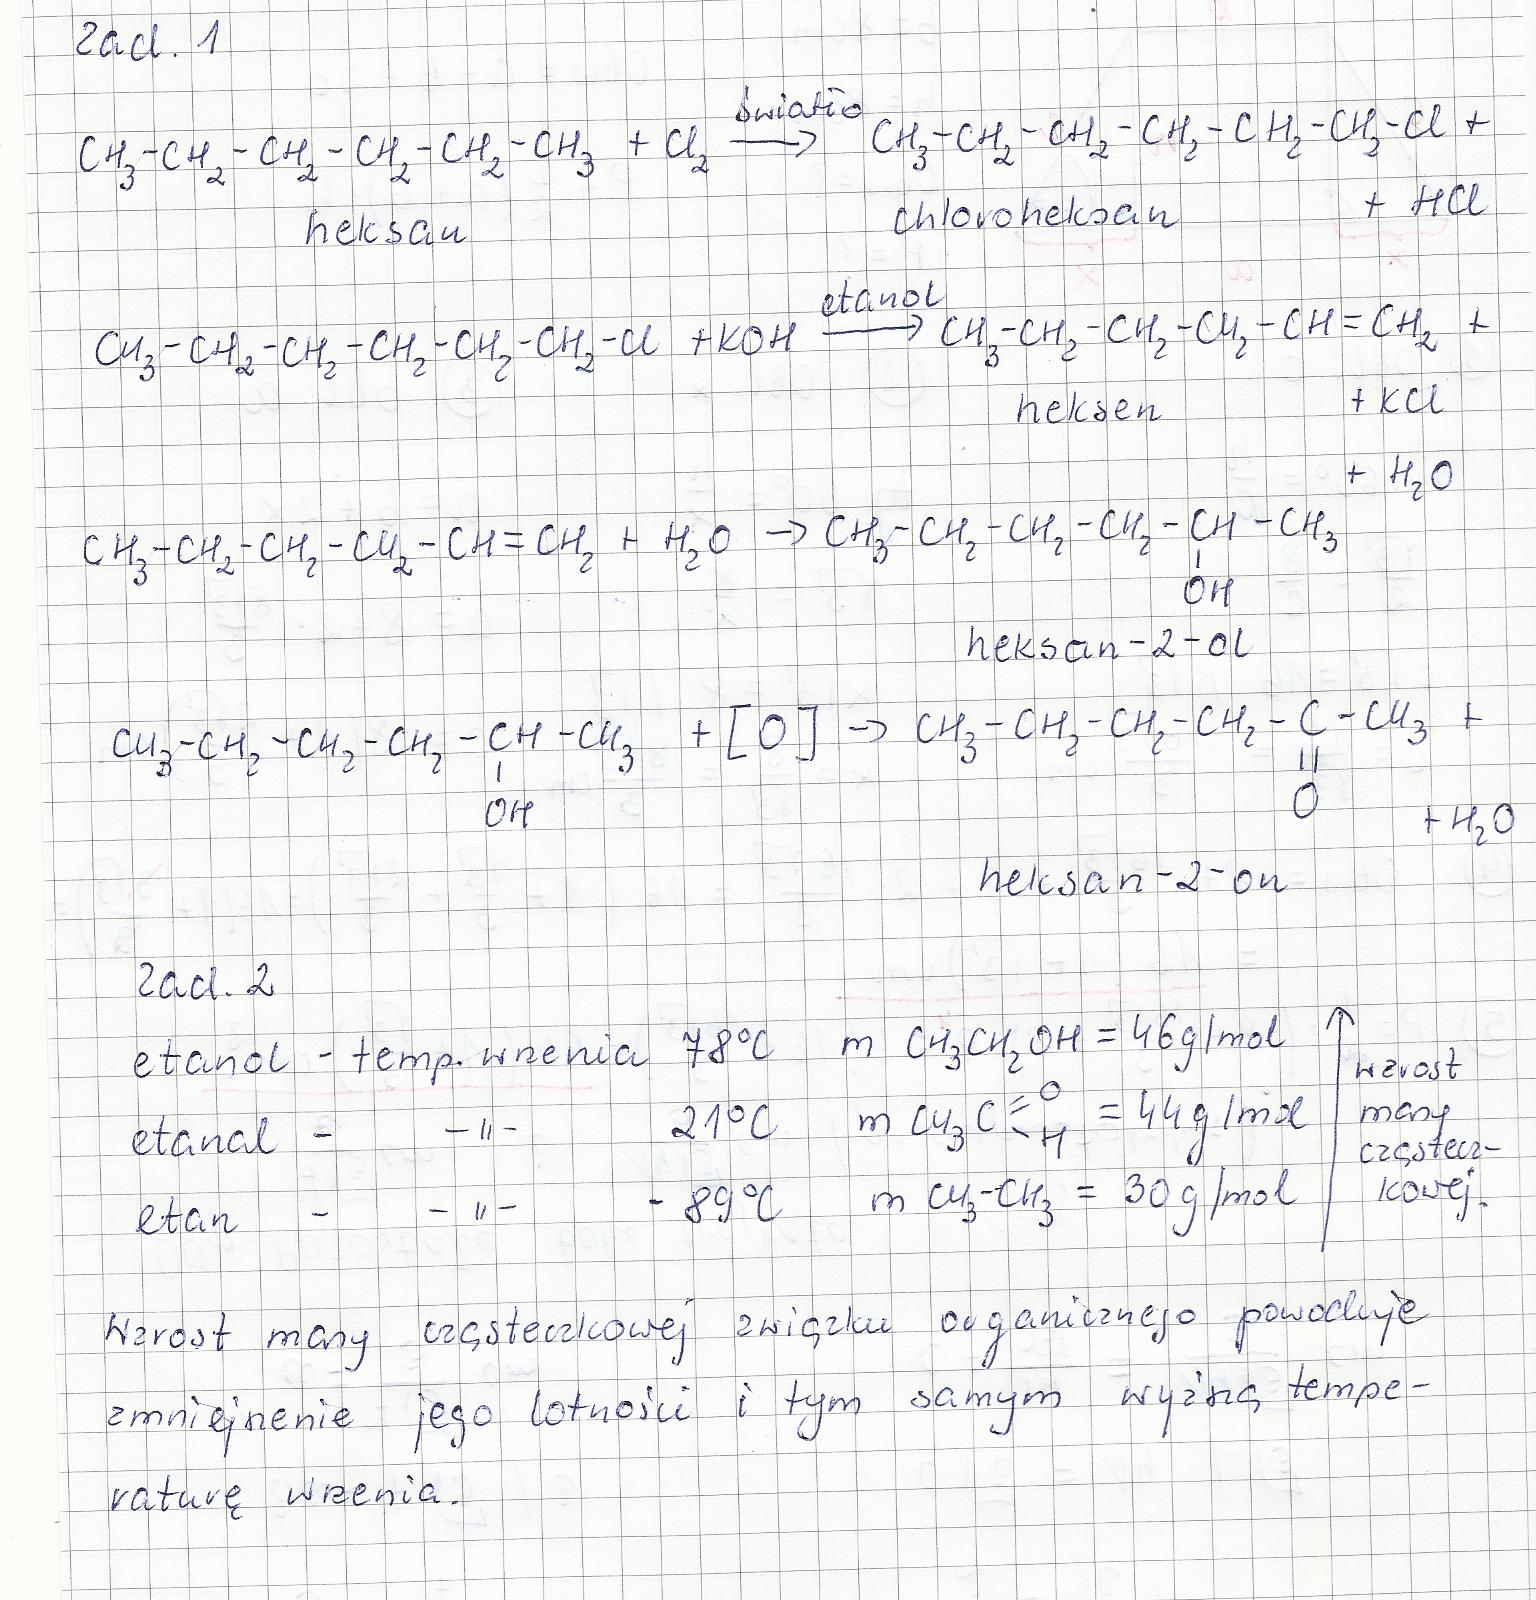 zad. 1
CH₃-CH₂-CH₂-CH₂-CH₂-CH₃ + Cl₂ światło → CH₃-CH₂-CH₂-CH₂-CH₂-CH₂-Cl +
heksan chloroheksan + HCl
CH₃-CH₂-CH₂-CH₂-CH₂-CH₂-Cl + KOH etanol → CH₃-CH₂-CH₂-CH₂-CH=CH₂ +
heksen + KCl
+ H₂O
CH₃-CH₂-CH₂-CH₂-CH=CH₂ + H₂O → CH₃-CH₂-CH₂-CH₂-CH-CH₃
OH
heksan-2-ol
CH₃-CH₂-CH₂-CH₂-CH-CH₃ + [O] → CH₃-CH₂-CH₂-CH₂-C-CH₃ +
OH O + H₂O
heksan-2-on
zad. 2
etanol - temp. wrzenia 78°C m CH₃CH₂OH = 46g/mol
etanal - -"- 21°C m CH₃C=O-H = 44g/mol
etan - -"- -89°C m CH₃-CH₃ = 30g/mol
wzrost
masy
cząstecz-
kowej.
Wzrost masy cząsteczkowej związku organicznego powoduje
zmniejszenie jego lotności i tym samym wyższą tempe-
raturę wrzenia.